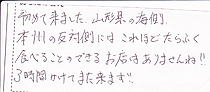 初めて来ました。山形県の海側。
本州の反対側にはこれほどたらふく
食べることのできるお店はありませんね!!
3時間かけてまた来ます!!